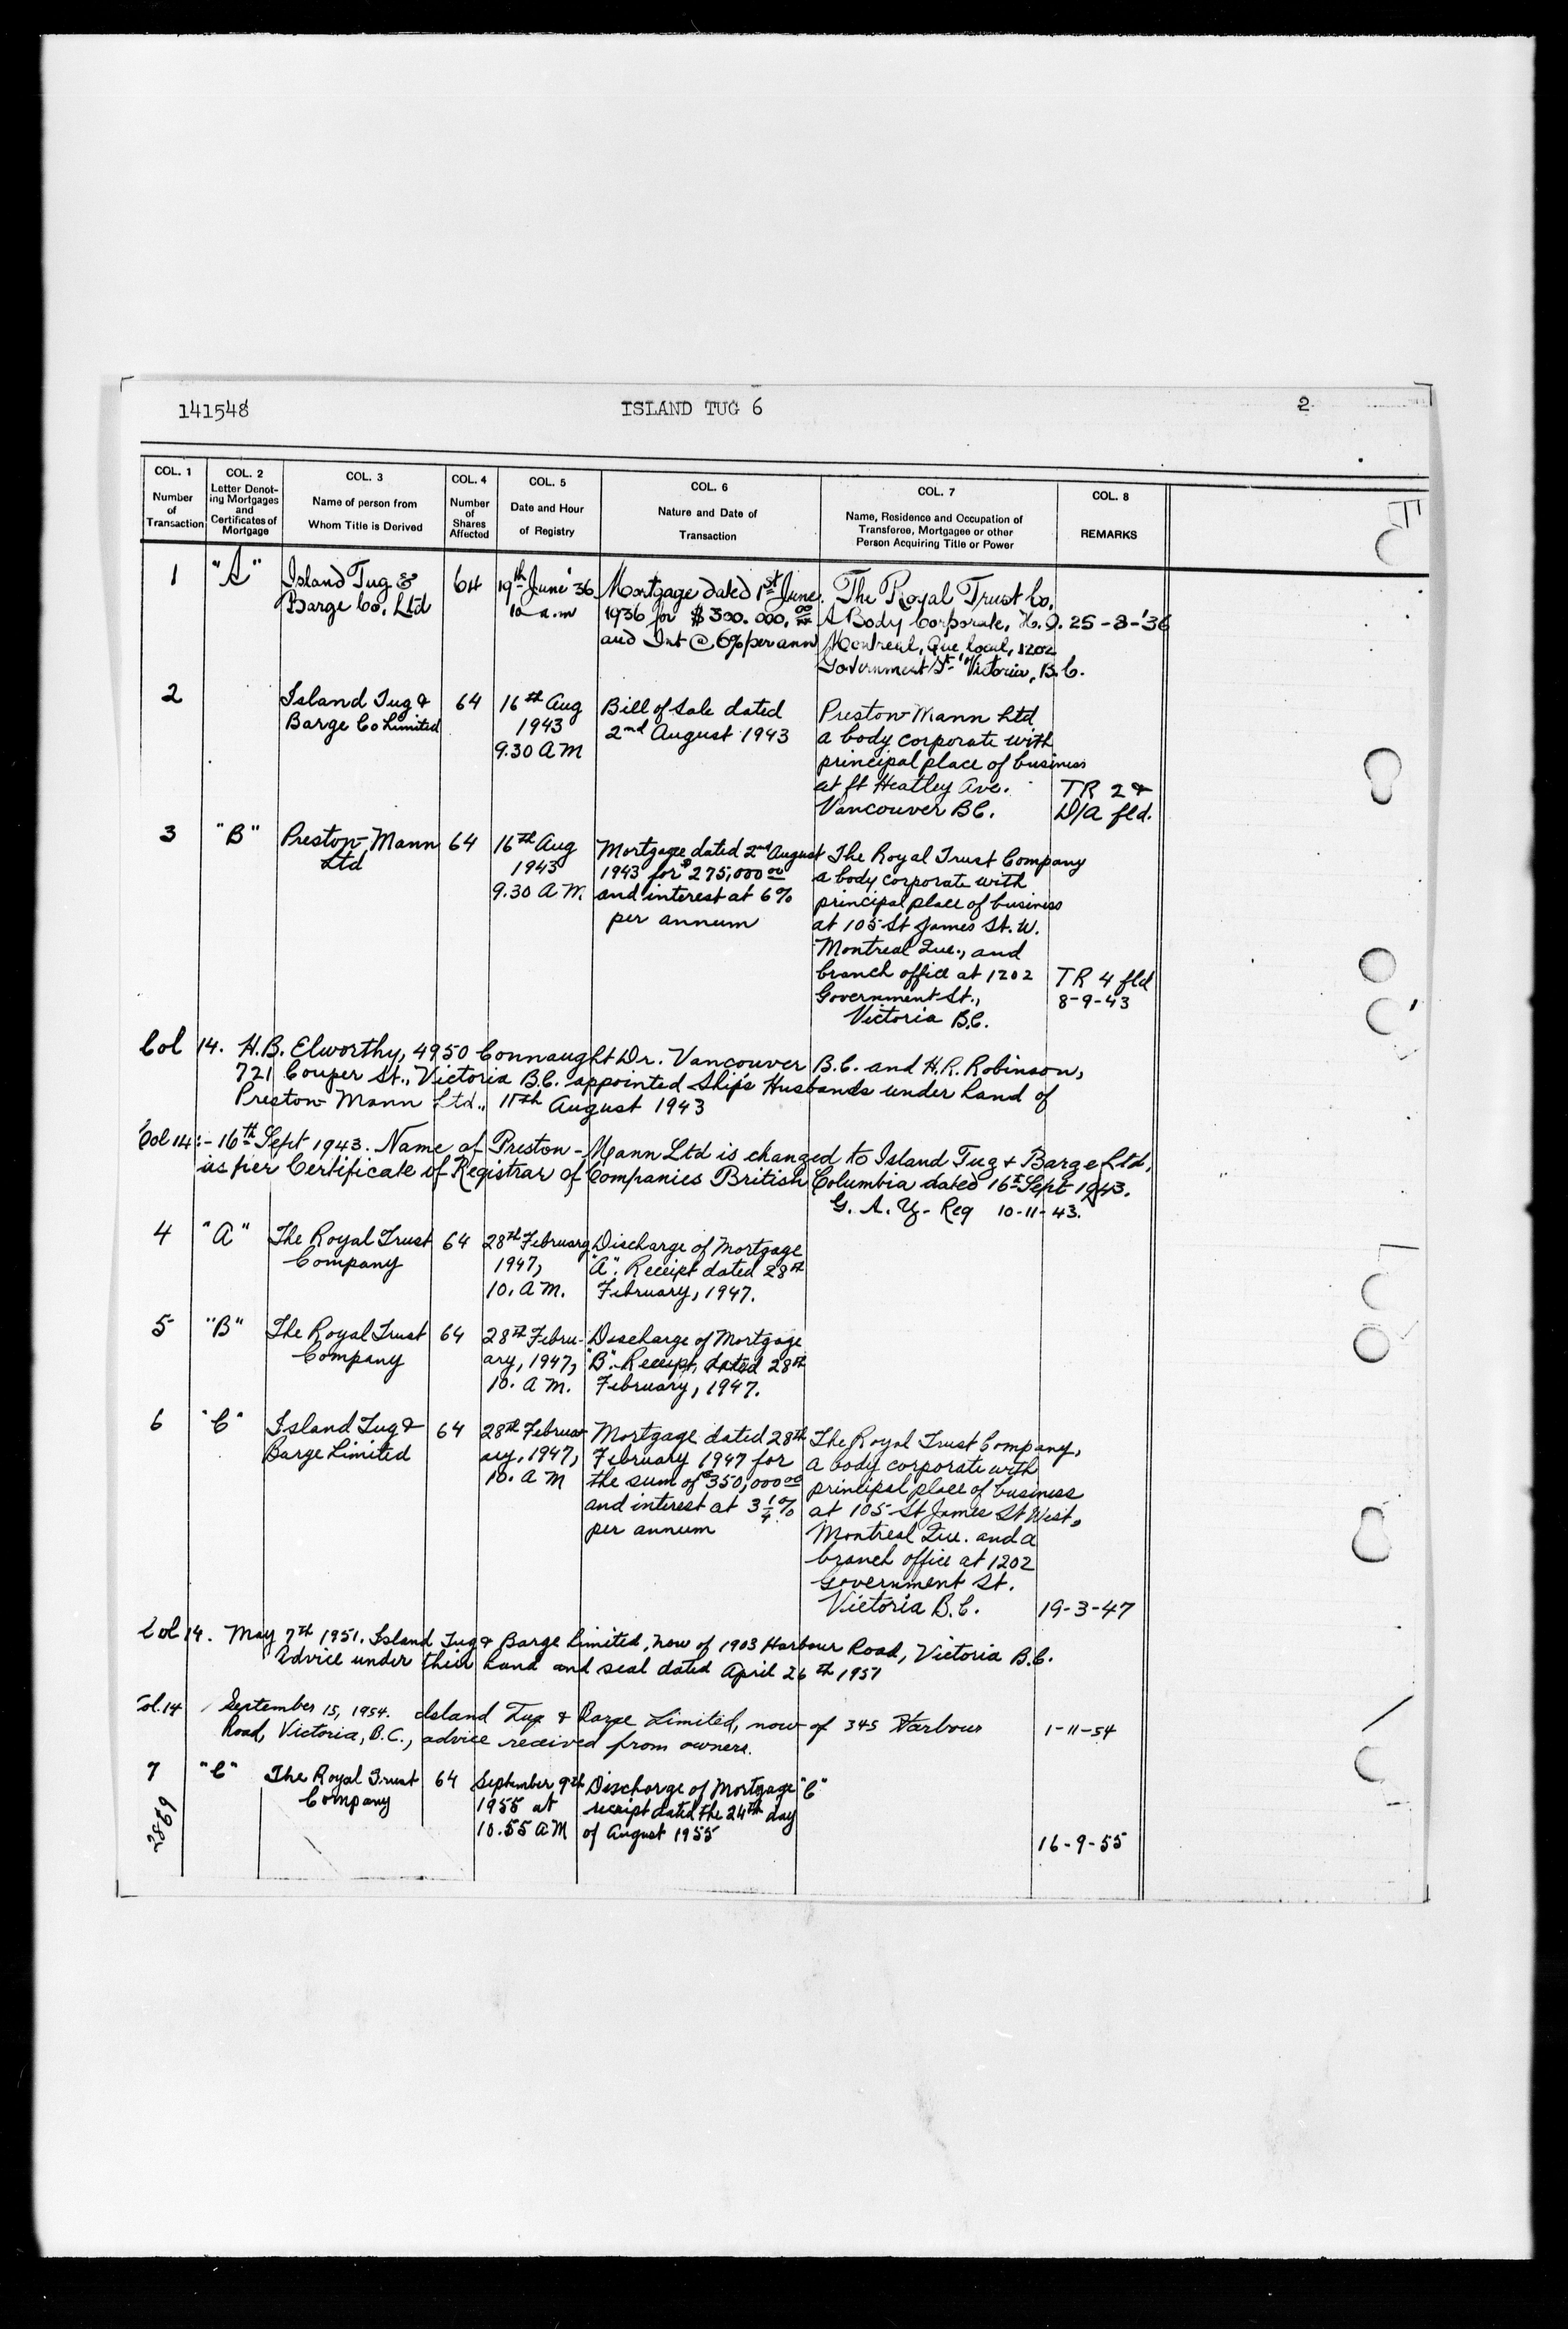 141548 ISLAND TUG 6 2
COL. 1 Number of Transaction
COL. 2 Letter Denoting Mortgages and Certificates of Mortgage
COL. 3 Name of person from Whom Title is Derived
COL. 4 Number of Shares Affected
COL. 5 Date and Hour of Registry
COL. 6 Nature and Date of Transaction
COL. 7 Name, Residence and Occupation of Transferee, Mortgagee or other Person Acquiring Title or Power
COL. 8 REMARKS
1 "A"
Island Tug &
Barge Co. Ltd
64
19th June '36
10 a.m
Mortgage dated 1st June
1936 for $300.000.00
and Int @ 6% per ann
The Royal Trust Co.
A Body Corporate, H.O.
Montreal, Que, local, 1202
Government St. Victoria, B.C.
25-8-'36
2
Island Tug &
Barge Co Limited
64
16th Aug
1943
9.30 A M
Bill of Sale dated
2nd August 1943
Preston-Mann Ltd
a body corporate with
principal place of business
at ft Heatley Ave.
Vancouver B.C.
TR 2 &
D/A fld.
3 "B"
Preston-Mann
Ltd
64
16th Aug
1943
9.30 A M.
Mortgage dated 2nd August
1943 for $275,000 00
and interest at 6%
per annum
The Royal Trust Company
a body corporate with
principal place of business
at 105 St James St. W.
Montreal Que., and
branch office at 1202
Government St.,
Victoria B.C.
TR 4 fld
8-9-43
Col 14. H.B. Elworthy, 4950 Connaught Dr. Vancouver B.C. and H.R. Robinson,
721 Couper St., Victoria B.C. appointed Ship's Husbands under hand of
Preston Mann Ltd., 11th August 1943
Col 14:- 16th Sept 1943. Name of Preston-Mann Ltd is changed to Island Tug & Barge Ltd,
as per Certificate of Registrar of Companies British Columbia dated 16th Sept 1943.
G. A. Y- Reg 10-11-43.
4 "A"
The Royal Trust
Company
64
28th February
1947,
10. A M.
Discharge of Mortgage
"A". Receipt dated 28th
February, 1947.
5 "B"
The Royal Trust
Company
64
28th Febru-
ary, 1947,
10. A M.
Discharge of Mortgage
"B". Receipt, dated 28th
February, 1947.
6 "C"
Island Tug &
Barge Limited
64
28th Febru-
ary, 1947,
10. A M
Mortgage dated 28th
February 1947 for
the sum of $350,000 00
and interest at 3 1/4 %
per annum
The Royal Trust Company,
a body corporate with
principal place of business
at 105 St James St West,
Montreal Que. and a
branch office at 1202
Government St.
Victoria B.C.
19-3-47
Col 14. May 7th 1951. Island Tug & Barge Limited, now of 1903 Harbour Road, Victoria B.C.
Advice under their hand and seal dated April 26th 1951
Col.14 September 15, 1954. Island Tug & Barge Limited, now of 345 Harbour
Road, Victoria, B.C., advice received from owners.
1-11-54
7 "C"
The Royal Trust
Company
64
September 9th
1955 at
10.55 A M
Discharge of Mortgage "C"
receipt dated the 24th day
of August 1955
16-9-55
2869